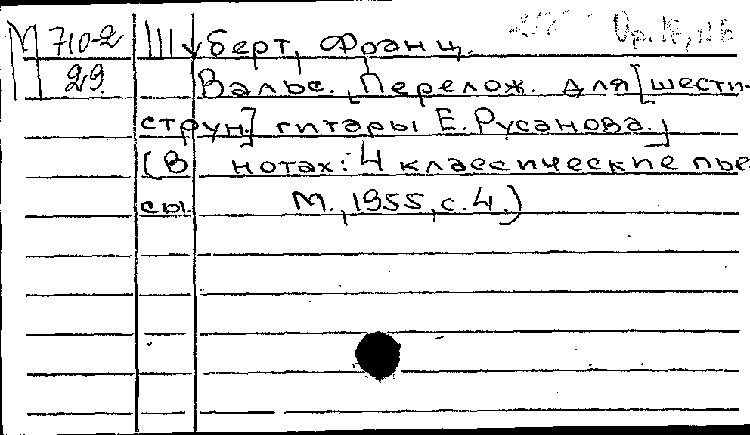 М 710-2
29.
Шуберт, Франц.
Вальс. [Перелож. для [шести-
струн.] гитары Е. Русанова.]
(В нотах: 4 классические пье-
сы. М., 1955, с. 4.)